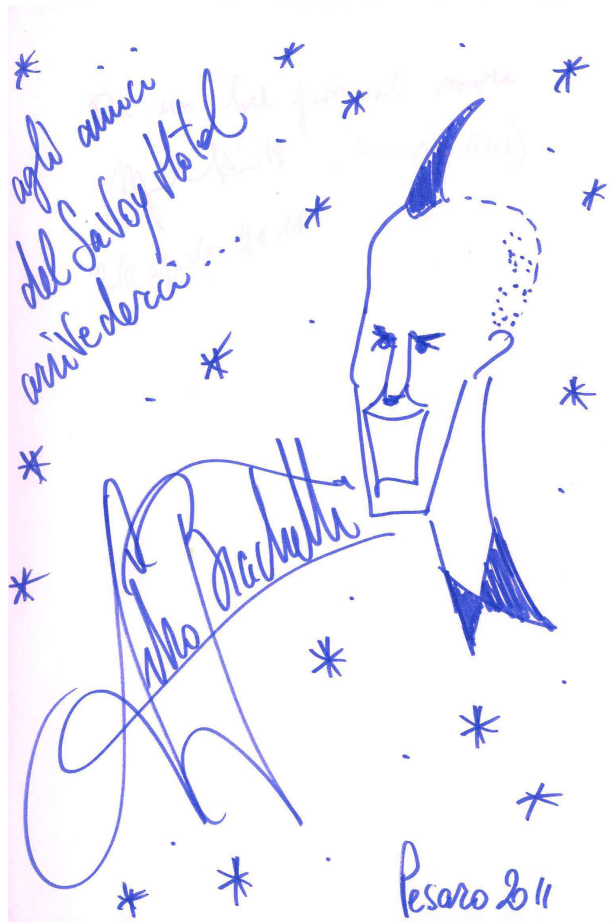 agli amici
del Savoy Hotel
arrivederci...
Arturo Brachetti
Pesaro 2011